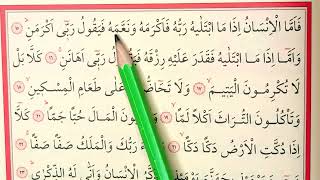 فَاَمَّا الْاِنْسَانُ اِذَا مَا ابْتَلٰيهُ رَبُّهُ فَاَكْرَمَهُ وَنَعَّمَهُ فَيَقُولُ رَبّٖى اَكْرَمَنِ ١٥
وَاَمَّا اِذَا مَا ابْتَلٰيهُ فَقَدَرَ عَلَيْهِ رِزْقَهُ رَبّٖى اَهَانَنِ ١٦ كَلَّا بَلْ
لَا تُكْرِمُونَ الْيَتِيمَ ١٧ وَلَا تَحَاضُّونَ عَلٰى طَعَامِ الْمِسْكِينِ ١٨
وَتَأْكُلُونَ التُّرَاثَ اَكْلًا لَمًّا ١٩ جَمًّا ٢٠ كَلَّا
اِذَا دُكَّتِ الْاَرْضُ دَكًّا دَكًّا ٢١ رَبُّكَ وَالْمَلَكُ صَفًّا صَفًّا ٢٢
الْاِنْسَانُ وَاَنّٰى لَهُ الذِّكْرٰى ٢٣